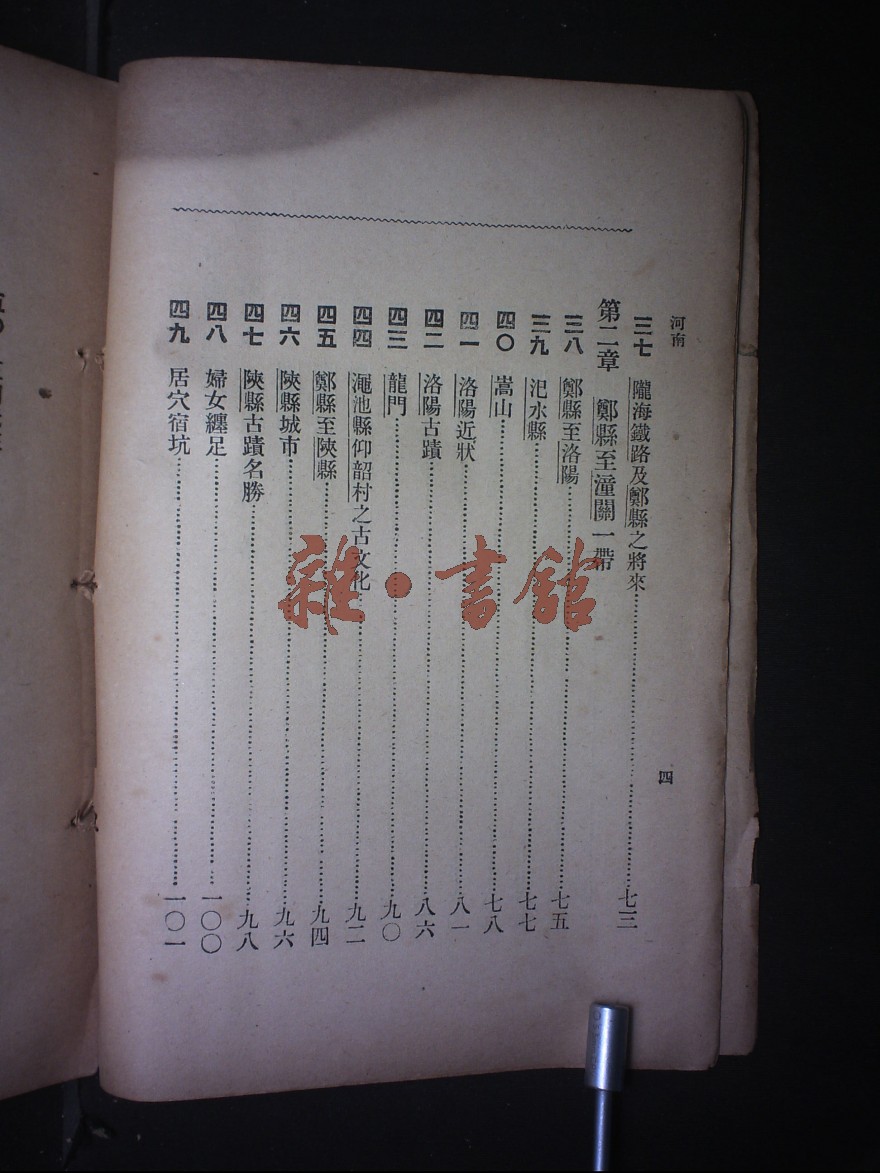 河南
四
三七 隴海鐵路及鄭縣之將來 七三
第二章 鄭縣至潼關一帶
三八 鄭縣至洛陽 七五
三九 汜水縣 七七
四〇 嵩山 七八
四一 洛陽近狀 八一
四二 洛陽古蹟 八六
四三 龍門 九〇
四四 澠池縣仰韶村之古文化 九二
四五 鄭縣至陝縣 九四
四六 陝縣城市 九六
四七 陝縣古蹟名勝 九八
四八 婦女纏足 一〇〇
四九 居穴宿坑 一〇一
雜·書館